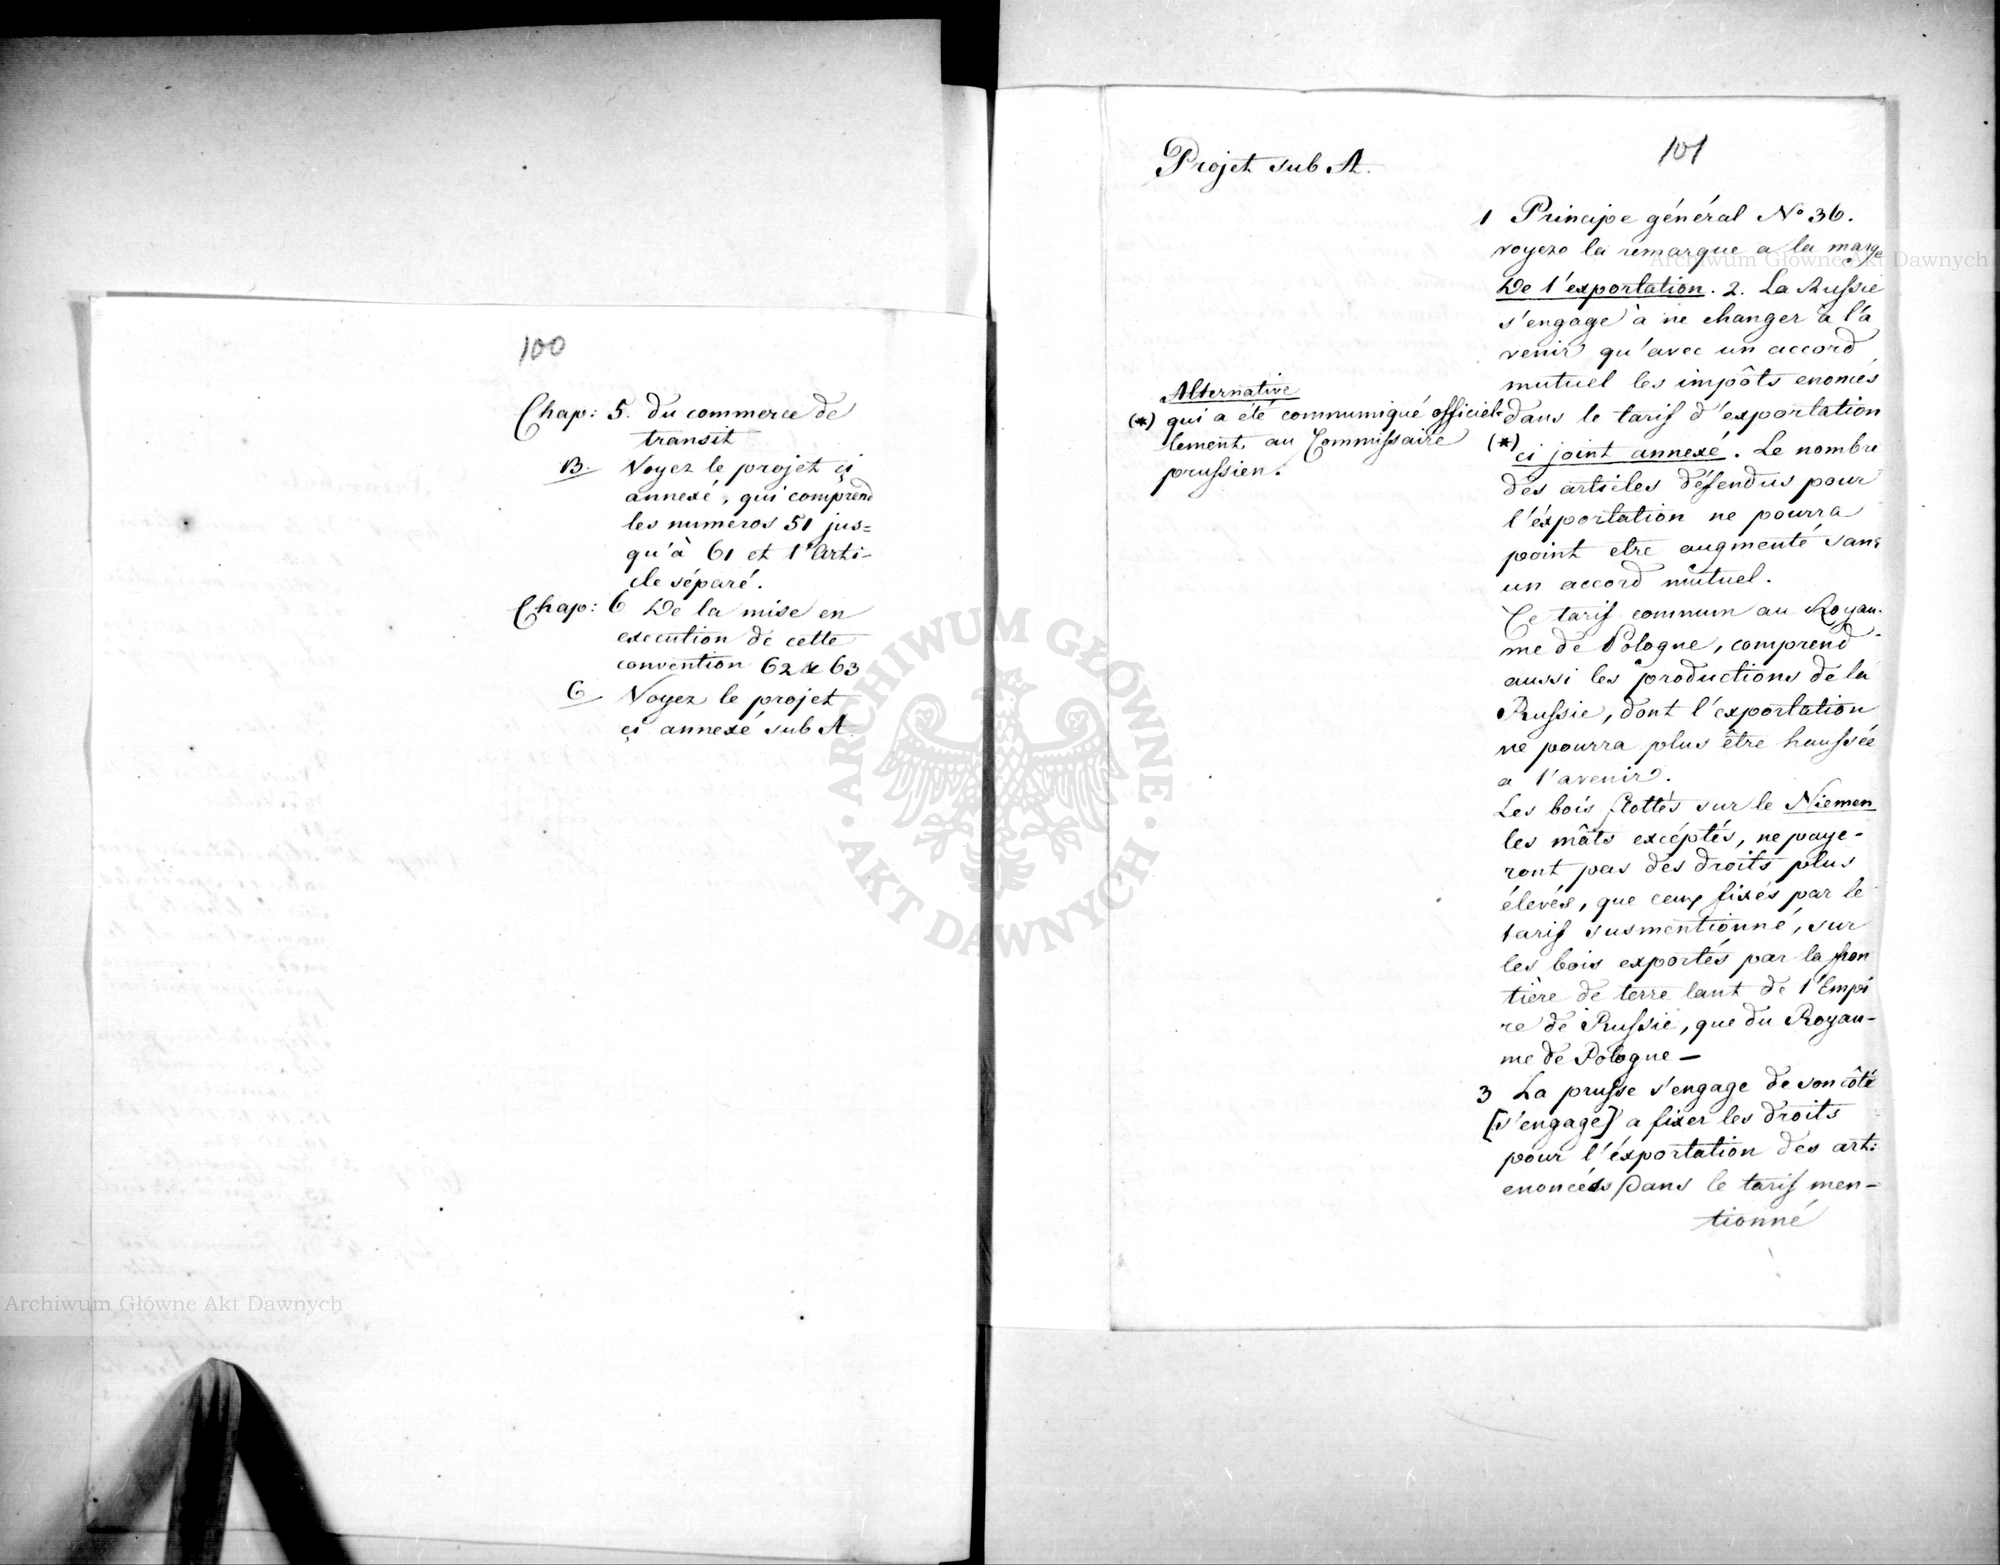 100
Chap: 5. du commerce de
transit
B. Voyez le projet çi
annexé, qui comprend
les numeros 51 jus=
qu'à 61 et l'Arti-
cle séparé.
Chap: 6 De la mise en
execution de cette
convention 62 & 63
C Voyez le projet
çi annexé sub A.
101
Projet sub A.
1 Principe général No 36.
voyez la remarque a la marge
De l'exportation. 2. La Russie
s'engage à ne changer à l'a
venir qu'avec un accord
mutuel les impôts enoncés
dans le tarif d'exportation
(*) ci joint annexé. Le nombre
des articles défendus pour
l'éxportation ne pourra
point etre augmenté sans
un accord mutuel.
Ce tarif commun au Royau-
me de Pologne, comprend
aussi les productions de la
Russie, dont l'exportation
ne pourra plus être haussée
a l'avenir.
Les bois flottés sur le Niemen
les mâts excéptés, ne paye-
ront pas des droits plus
élevés, que ceux fixés par le
tarif susmentionné, sur
les bois exportés par la fron
tière de terre tant de l'Empi
re de Russie, que du Royau-
me de Pologne —
3 La prusse s'engage de son côté
[s'engage] a fixer les droits
pour l'éxportation des arti:
enoncées dans le tarif men-
tionné
Alternative
(*) qui a été communiqué officiel-
lement au Commissaire
prussien.
Archiwum Główne Akt Dawnych
Archiwum Główne Akt Dawnych
ARCHIWUM GŁÓWNE
AKT DAWNYCH